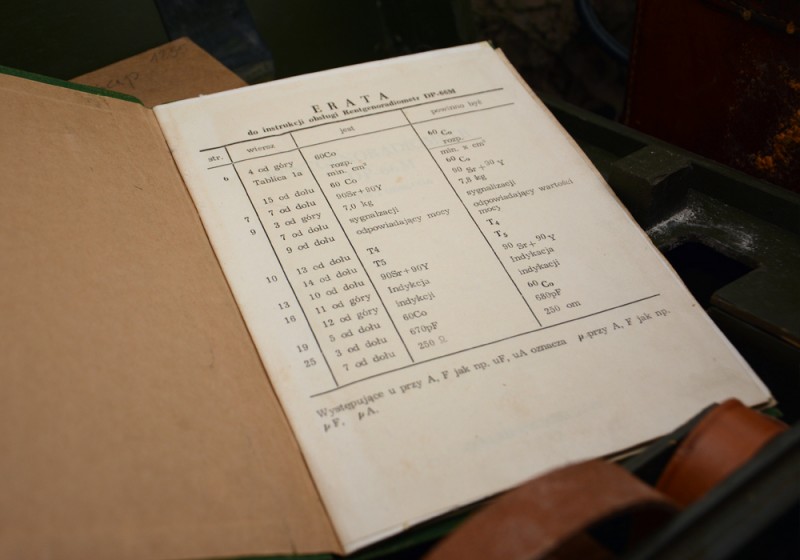 ERATA
do instrukcji obsługi Rentgenoradiometr DP-66M
str. wiersz jest powinno być
6 4 od góry 60Co 60 Co
Tablica 1a rozp. rozp.
min. cm² min. x cm²
15 od dołu 60 Co 60 Co
7 od dołu 90Sr+90Y 90 Sr+90 Y
7 3 od góry 7,0 kg 7,8 kg
9 7 od dołu sygnalzacji sygnalizacji
9 od dołu odpowiadający mocy odpowiadający wartości
mocy
10 13 od dołu T4 T₄
14 od dołu T5 T₅
10 od dołu 90Sr+90Y 90 Sr+90 Y
13 11 od góry Indykcja Indykacja
16 12 od góry indykcji indykacji
5 od dołu 60Co 60 Co
19 3 od dołu 670pF 680pF
25 7 od dołu 250 Ω 250 om
Występujące u przy A, F jak np. uF, uA oznacza μ przy A, F jak np.
μF, μA.